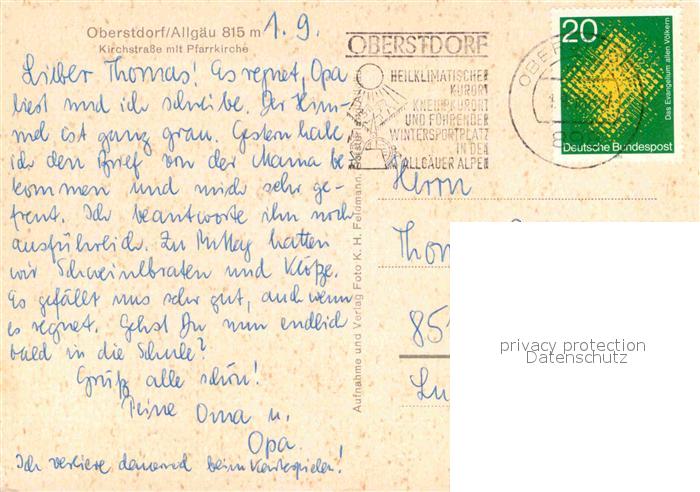 Oberstdorf/Allgäu 815 m
Kirchstraße mit Pfarrkirche
1.9.
Lieber Thomas! Es regnet, Opa
liest und ich schreibe. Der Him-
mel ist ganz grau. Gestern habe
ich den Brief von der Mama be
kommen und mich sehr ge-
freut. Ich beantworte ihn noch
ausführlich. Zu Mittag hatten
wir Schweinebraten und Klöße.
Es gefällt uns sehr gut, auch wenn
es regnet. Gehst Du nun endlich
bald in die Schule?
Grüß alle schön!
Deine Oma u.
Opa.
Ich verliere dauernd beim Kartespielen!
Aufnahme und Verlag Foto K. H. Feldmann,
OBERSTDORF
HEILKLIMATISCHER
KURORT
KNEIPPKURORT
UND FÜHRENDER
WINTERSPORTPLATZ
IN DEN
ALLGÄUER ALPEN
20
Das Evangelium allen Völkern
Deutsche Bundespost
Herrn
Tho
85
privacy protection
Datenschutz